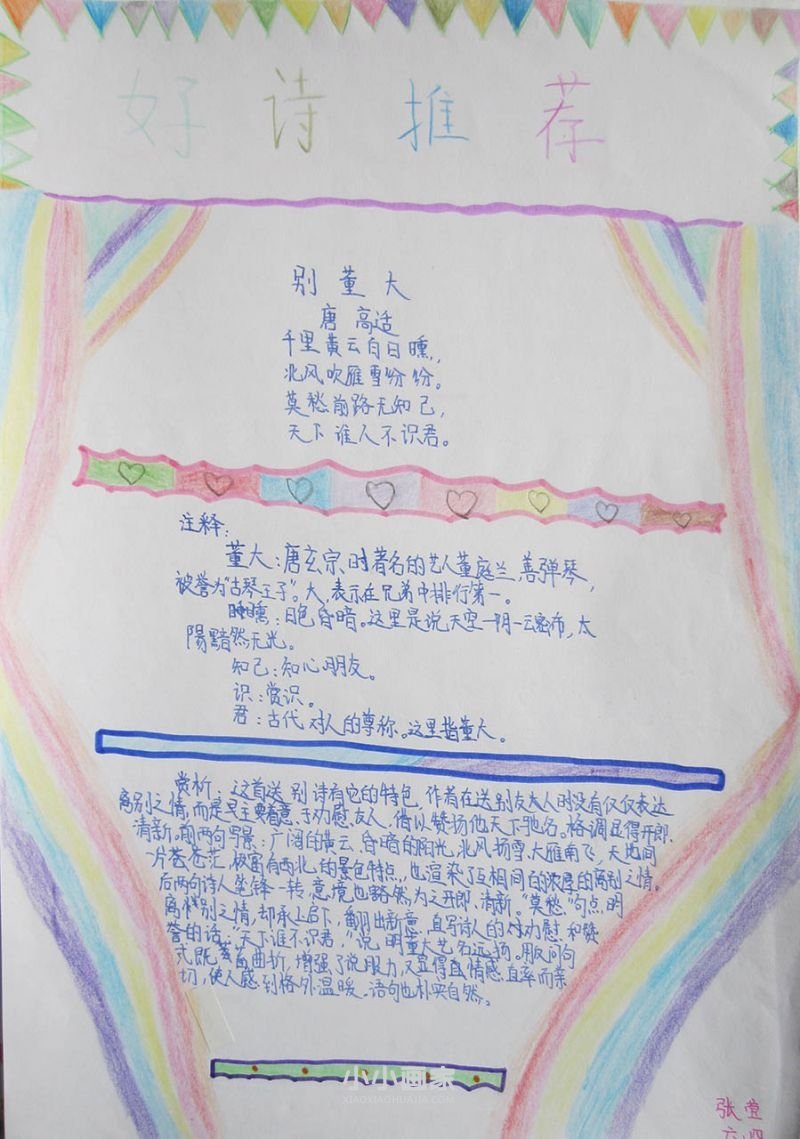 好诗推荐
别董大
唐 高适
千里黄云白日曛,
北风吹雁雪纷纷。
莫愁前路无知己,
天下谁人不识君。
注释:
董大:唐玄宗时著名的艺人董庭兰,善弹琴,
被誉为“古琴王子”。大,表示在兄弟中排行第一。
曛:日色昏暗。这里是说天空阴云密布,太
陽黯然无光。
知己:知心朋友。
识:赏识。
君:古代对人的尊称。这里指董大。
赏析:这首送别诗有它的特色,作者在送别友人时没有仅仅表达
离别之情,而是主要着意于劝慰友人,借以赞扬他天下驰名。格调显得开郎、
清新。前两句写景:广阔的黄云,昏暗的阳光,北风扬雪,大雁南飞,天地间
一片苍茫,极富有西北的景色特点,也渲染了互相间的浓厚的离别之情。
后两句诗人笔锋一转,意境也豁然为之开郎、清新。“莫愁”句点明
离别之情,却承上启下,翻出新意,直写诗人的对劝慰和赞
誉的话。“天下谁不识君,”说明董大艺名远扬。用反问句
式既著曲折,增强了说服力,又显得真情感直率而亲
切,使人感到格外温暖。语句也朴实自然。
小小画家
XIAOXIAOHUAJIA.COM
张萱
六.四